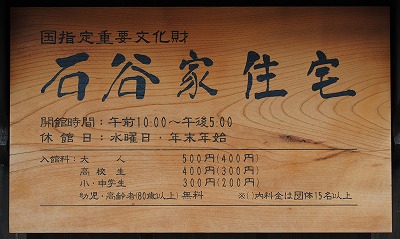 国指定重要文化財
石谷家住宅
開館時間：午前10:00～午後5:00
休館日：水曜日・年末年始
入館料：大人 500円(400円)
高校生 400円(300円)
小・中学生 300円(200円)
幼児・高齢者(80歳以上)無料 ※()内料金は団体15名以上